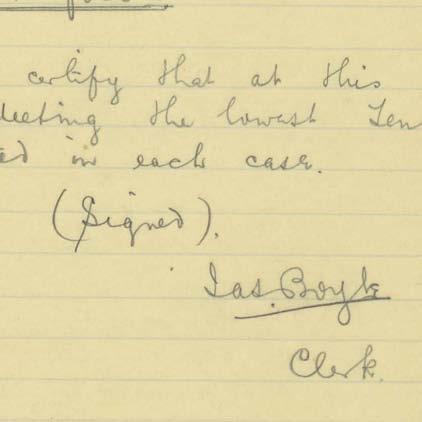 certify that at this
Meeting the lowest Ten
ed in each case.
(Signed).
Jas. Boyle
Clerk.